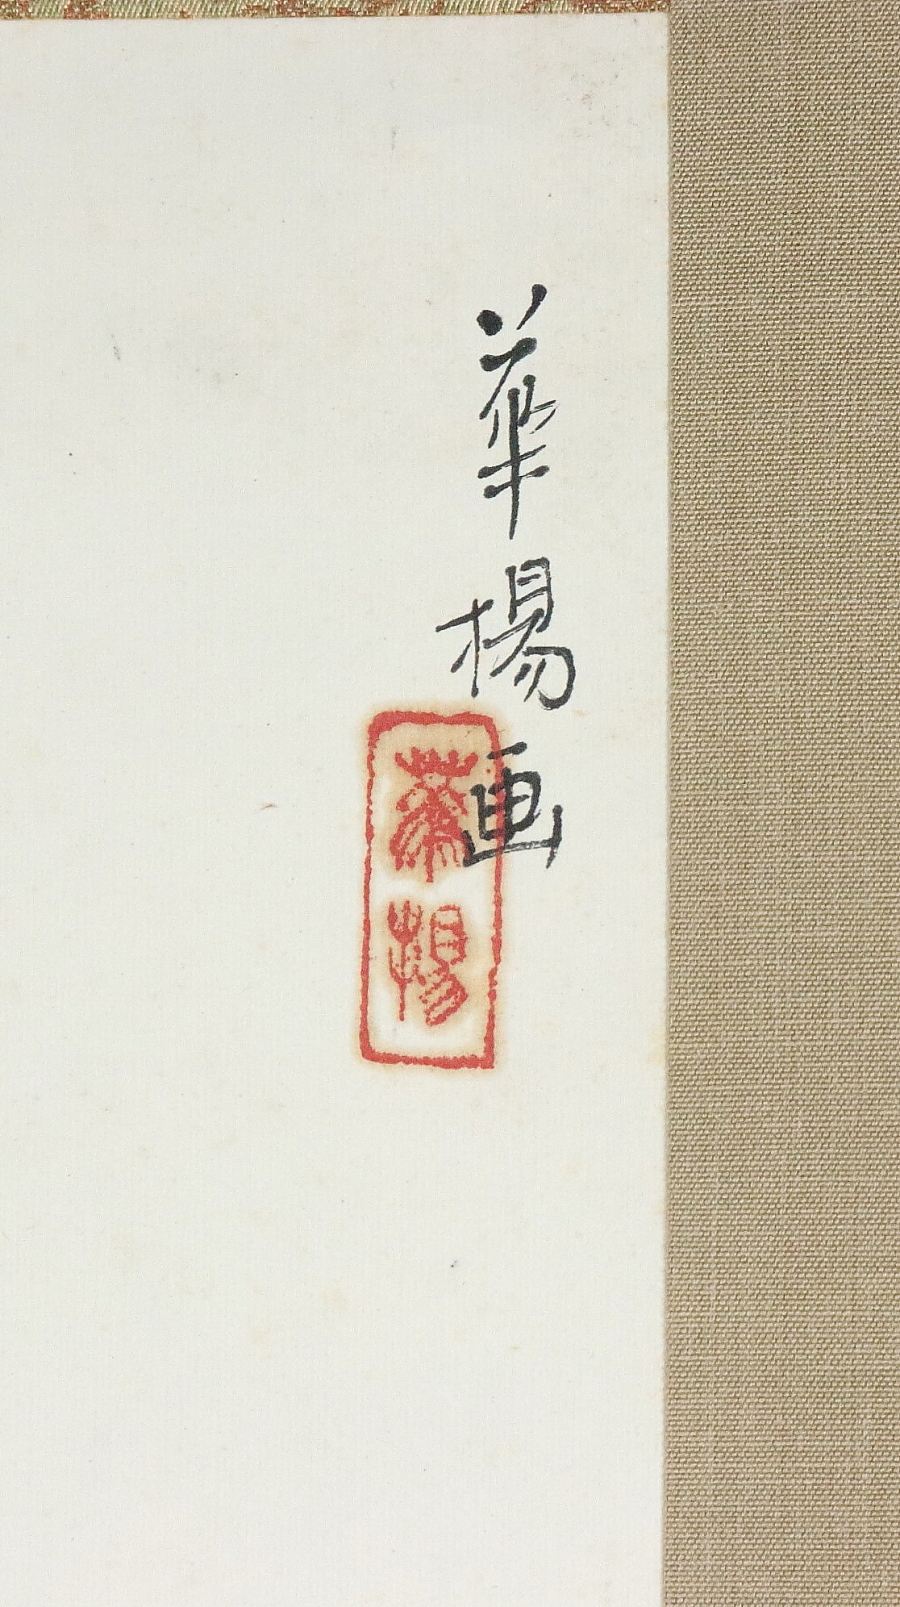 華楊画
華楊